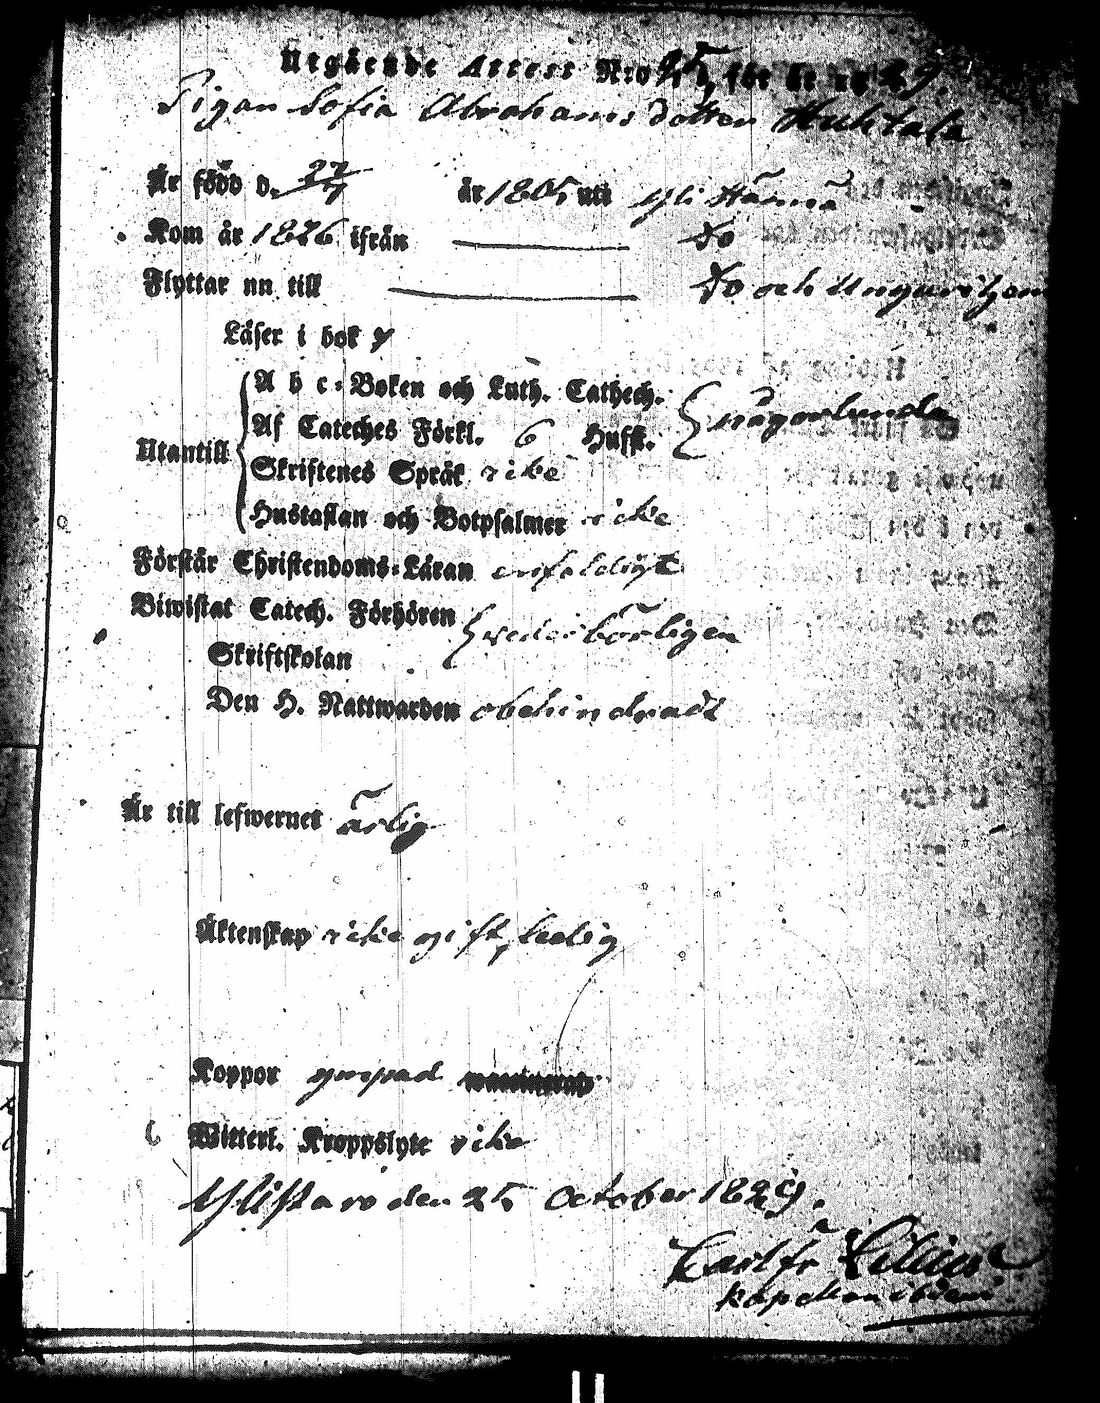 Utgående Attest N:o 25, för år 1829.
Pigan Sofia Abrahams dotter Huhtala
Är född d. 27/7 år 1805 uti Yli Härmä
Kom år 1826 ifrån Do
Flyttar nu till Do och Ungerigham
Läser i bok
Utantill
A b c-Boken och Luth. Cathech.
Af Cateches Förkl. 6 Hufst. någorlunda
Skriftenes Språk icke
Hustaflan och Botpsalmer icke
Förstår Christendoms-Läran enfaldigt
Biwistat Catech. Förhören vederbörligen
Skriftskolan
Den H. Nattwarden obehindradt
Är till lefwernet ärlig
Äktenskap icke gift, ledig
Koppor ympad
Witterl. Kroppslyte icke
Ylistaro den 25 October 1829.
Carl Fr Lilius
kapellan ibidem